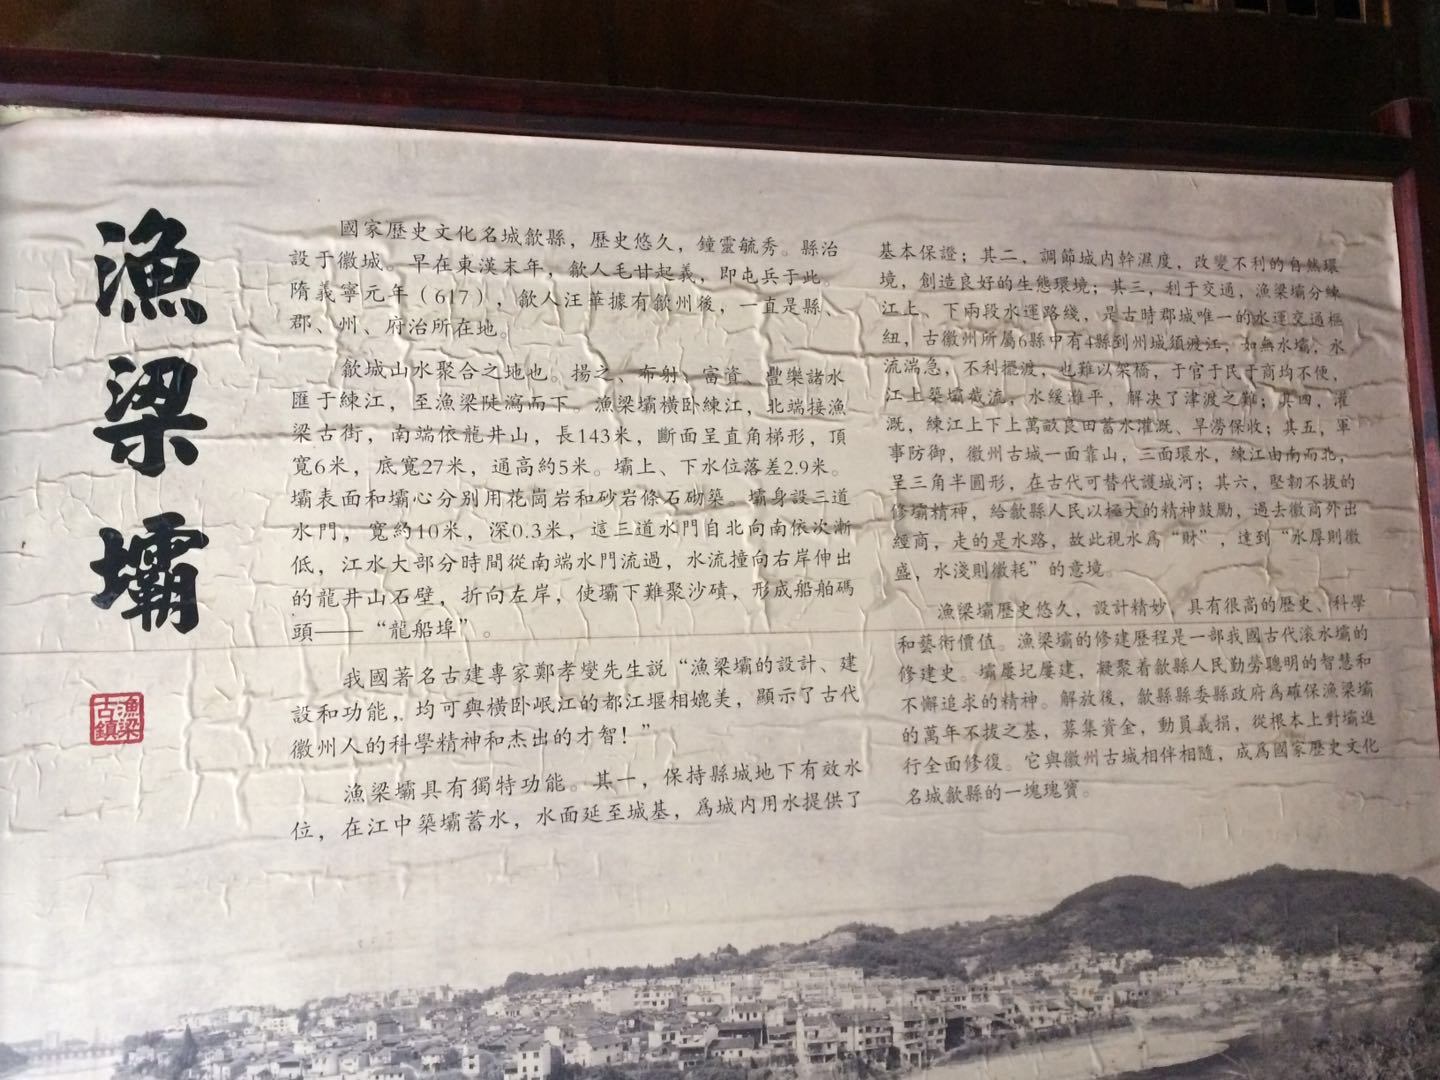 漁梁壩
漁梁
古鎮
國家歷史文化名城歙縣，歷史悠久，鐘靈毓秀。縣治
設于徽城。早在東漢末年，歙人毛甘起義，即屯兵于此。
隋義寧元年（617），歙人汪華據有歙州後，一直是縣、
郡、州、府治所在地。
歙城山水聚合之地也。揚之、布射、富資、豐樂諸水
匯于練江，至漁梁陡瀉而下。漁梁壩橫卧練江，北端接漁
梁古街，南端依龍井山，長143米，斷面呈直角梯形，頂
寬6米，底寬27米，通高約5米。壩上、下水位落差2.9米。
壩表面和壩心分别用花崗岩和砂岩條石砌築。壩身設三道
水門，寬約10米，深0.3米，這三道水門自北向南依次漸
低，江水大部分時間從南端水門流過，水流撞向右岸伸出
的龍井山石壁，折向左岸，使壩下難聚沙磧，形成船舶碼
頭——“龍船埠”。
我國著名古建專家鄭孝燮先生説“漁梁壩的設計、建
設和功能，均可與横卧岷江的都江堰相媲美，顯示了古代
徽州人的科學精神和杰出的才智！”
漁梁壩具有獨特功能。其一，保持縣城地下有效水
位，在江中築壩蓄水，水面延至城基，爲城内用水提供了
基本保證；其二，調節城内幹濕度，改變不利的自然環
境，創造良好的生態環境；其三，利于交通，漁梁壩分練
江上、下兩段水運路綫，是古時郡城唯一的水運交通樞
紐，古徽州所屬6縣中有4縣到州城須渡江，如無水壩，水
流湍急，不利擺渡，也難以架橋，于官于民于商均不便，
江上築壩截流，水緩灘平，解决了津渡之難；其四，灌
溉，練江上下上萬畝良田蓄水灌溉、旱澇保收；其五，軍
事防御，徽州古城一面靠山，三面環水，練江由南而北，
呈三角半圓形，在古代可替代護城河；其六，堅韌不拔的
修壩精神，給歙縣人民以極大的精神鼓勵，過去徽商外出
經商，走的是水路，故此視水爲“財”，達到“水厚則徽
盛，水淺則徽耗”的意境。
漁梁壩歷史悠久，設計精妙，具有很高的歷史、科學
和藝術價值。漁梁壩的修建歷程是一部我國古代滚水壩的
修建史。壩屢圮屢建，凝聚着歙縣人民勤勞聰明的智慧和
不懈追求的精神。解放後，歙縣縣委縣政府爲確保漁梁壩
的萬年不拔之基，募集資金，動員義捐，從根本上對壩進
行全面修復。它與徽州古城相伴相隨，成爲國家歷史文化
名城歙縣的一塊瑰寶。